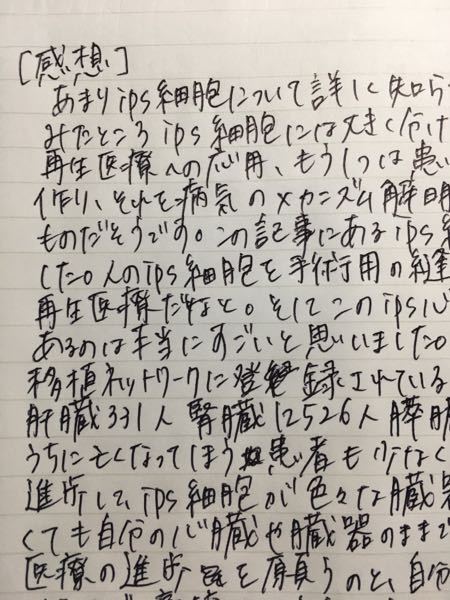 [感想]
あまりips細胞について詳しく知ら
みたところips細胞には大きく分け
再生医療への応用、もう1つは患い
作り、それを病気のメカニズム解明
ものだそうです。この記事にあるips
した。人のips細胞を手術用の縫
再生医療だなと。そしてこのips心
あるのは本当にすごいと思いました。
移植ネットワークに登録されている
肝臓331人 腎臓12526人 膵臓
うちに亡くなってしまう患者も少なく
進歩して、ips細胞が色々な臓器
くても自分の心臓や臓器のままで
医療の進歩を願うのと、自分